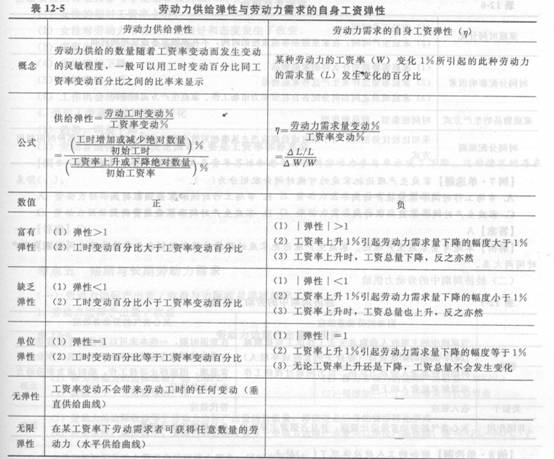 表 12-5 劳动力供给弹性与劳动力需求的自身工资弹性
劳动力供给弹性 劳动力需求的自身工资弹性（η）
概念
劳动力供给的数量随着工资率变动而发生变动
的灵敏程度，一般可以用工时变动百分比同工
资率变动百分比之间的比率来显示
某种劳动力的工资率（W）变化 1%所引起的此种劳动力
的需求量（L）发生变化的百分比
公式
供给弹性=劳动工时变动%
工资率变动%
=(工时增加或减少绝对数量
初始工时)%
(工资率上升或下降绝对数量
初始工资率)%
η=劳动力需求量变动%
工资率变动%
=ΔL/L
ΔW/W
数值 正 负
富有
弹性
（1）弹性>1
（2）工时变动百分比大于工资率变动百分比
（1）|弹性|>1
（2）工资率上升1%引起劳动力需求量下降的幅度大于1%
（3）工资率上升时，工资总量下降，反之亦然
缺乏
弹性
（1）弹性<1
（2）工时变动百分比小于工资率变动百分比
（1）|弹性|<1
（2）工资率上升1%引起劳动力需求量下降的幅度小于1%
（3）工资率上升时，工资总量也上升，反之亦然
单位
弹性
（1）弹性=1
（2）工时变动百分比等于工资率变动百分比
（1）|弹性|=1
（2）工资率上升1%引起劳动力需求量下降的幅度等于1%
（3）无论工资率上升还是下降，工资总量不会发生变化
无弹性
工资率变动不会带来劳动工时的任何变动（垂
直供给曲线）
—
无限
弹性
在某工资率下劳动需求者可获得任意数量的劳
动力（水平供给曲线）
—